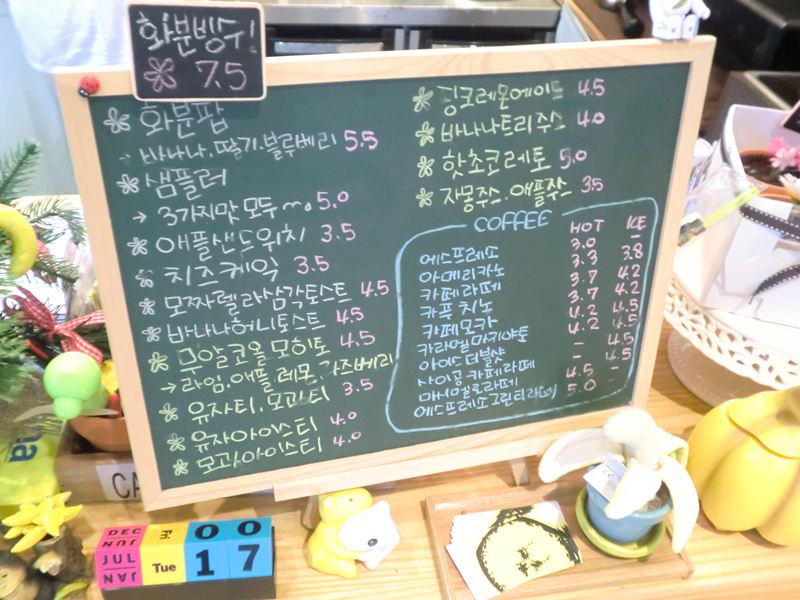 화분빙수!
7.5
화분팝
→ 바나나.딸기.블루베리 5.5
샘플러
→ 3가지맛 모두~ 5.0
애플샌드위치 3.5
치즈케익 3.5
모짜렐라삼각토스트 4.5
바나나허니토스트 4.5
무알코올 모히또 4.5
→ 라임.애플.레몬.
유자티.모과티 3.5
유자아이스티 4.0
모과아이스티 4.0
핑크레몬에이드 4.5
바나나트리주스 4.0
핫초코레토 5.0
자몽주스.애플주스 3.5
COFFEE HOT ICE
에스프레소 3.0 -
아메리카노 3.3 3.8
카페라떼 3.7 4.2
카푸치노 3.7 4.2
카페모카 4.2 4.5
카라멜마키아토 4.2 4.5
아이스더블샷 - 4.5
사이공카페라떼 - 4.5
마시멜로라떼 4.5 -
에스프레소그린티라떼 5.0
CA
DEC
JUN
Fri
00
JUL
JAN
Tue
17